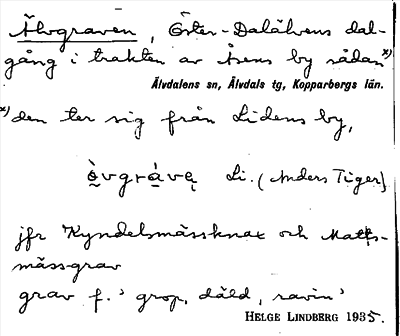 Älvgraven, Öster-Dalälvens dal-
gång i trakten av Åsens by sådan x)
Älvdalens sn, Älvdals tg, Kopparbergs län.
x) den ter sig från Lidens by,
Li. (Anders Tiger)
jfr Kyndelsmässknax och Matts-
mässgrav
grav f. 'grop, däld, ravin'
HELGE LINDBERG 1935.